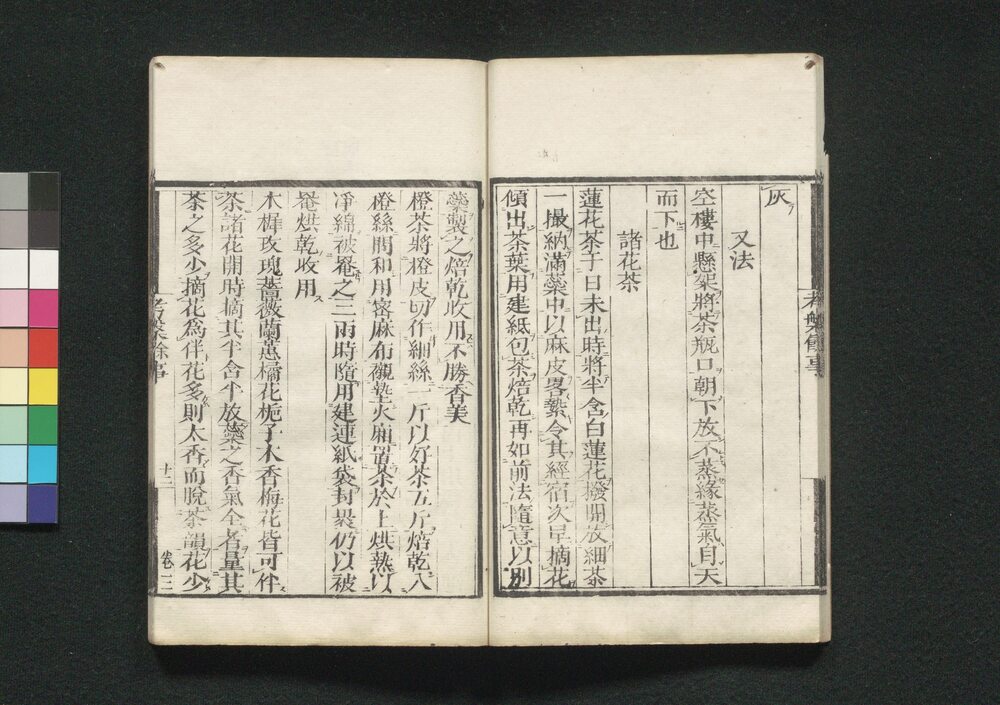 灰
又法
空樓中懸架將茶瓶口朝下放不蒸緣蒸氣自天
而下也
諸花茶
蓮花茶于日未出時將半含白蓮花撥開放細茶
一撮納滿蘂中以麻皮畧縶令其經宿次早摘花
傾出茶葉用建紙包茶焙乾再如前法隨意以別
考槃餘事
蘂製之焙乾收用不勝香美
橙茶將橙皮切作細絲一斤以好茶五斤焙乾入
橙絲間和用密麻布襯墊火廂置茶於上烘熱以
淨綿被罨之三兩時隨用建連紙袋封裹仍以被
罨烘乾收用
木樨玫瑰薔薇蘭蕙橘花梔子木香梅花皆可伴
茶諸花開時摘其半含半放蘂之香氣全者量其
茶之多少摘花為伴花多則太香而脫茶韻花少
考槃餘事 十二 卷三